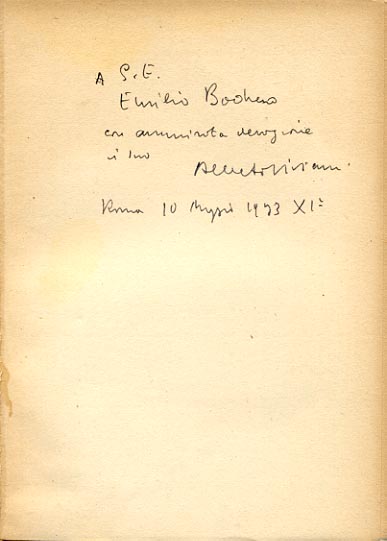 A S.E.
Emilio Bodrero
con ammirata devozione
il suo
Alberto Viviani.
Roma 10 Maggio 1933 XI°